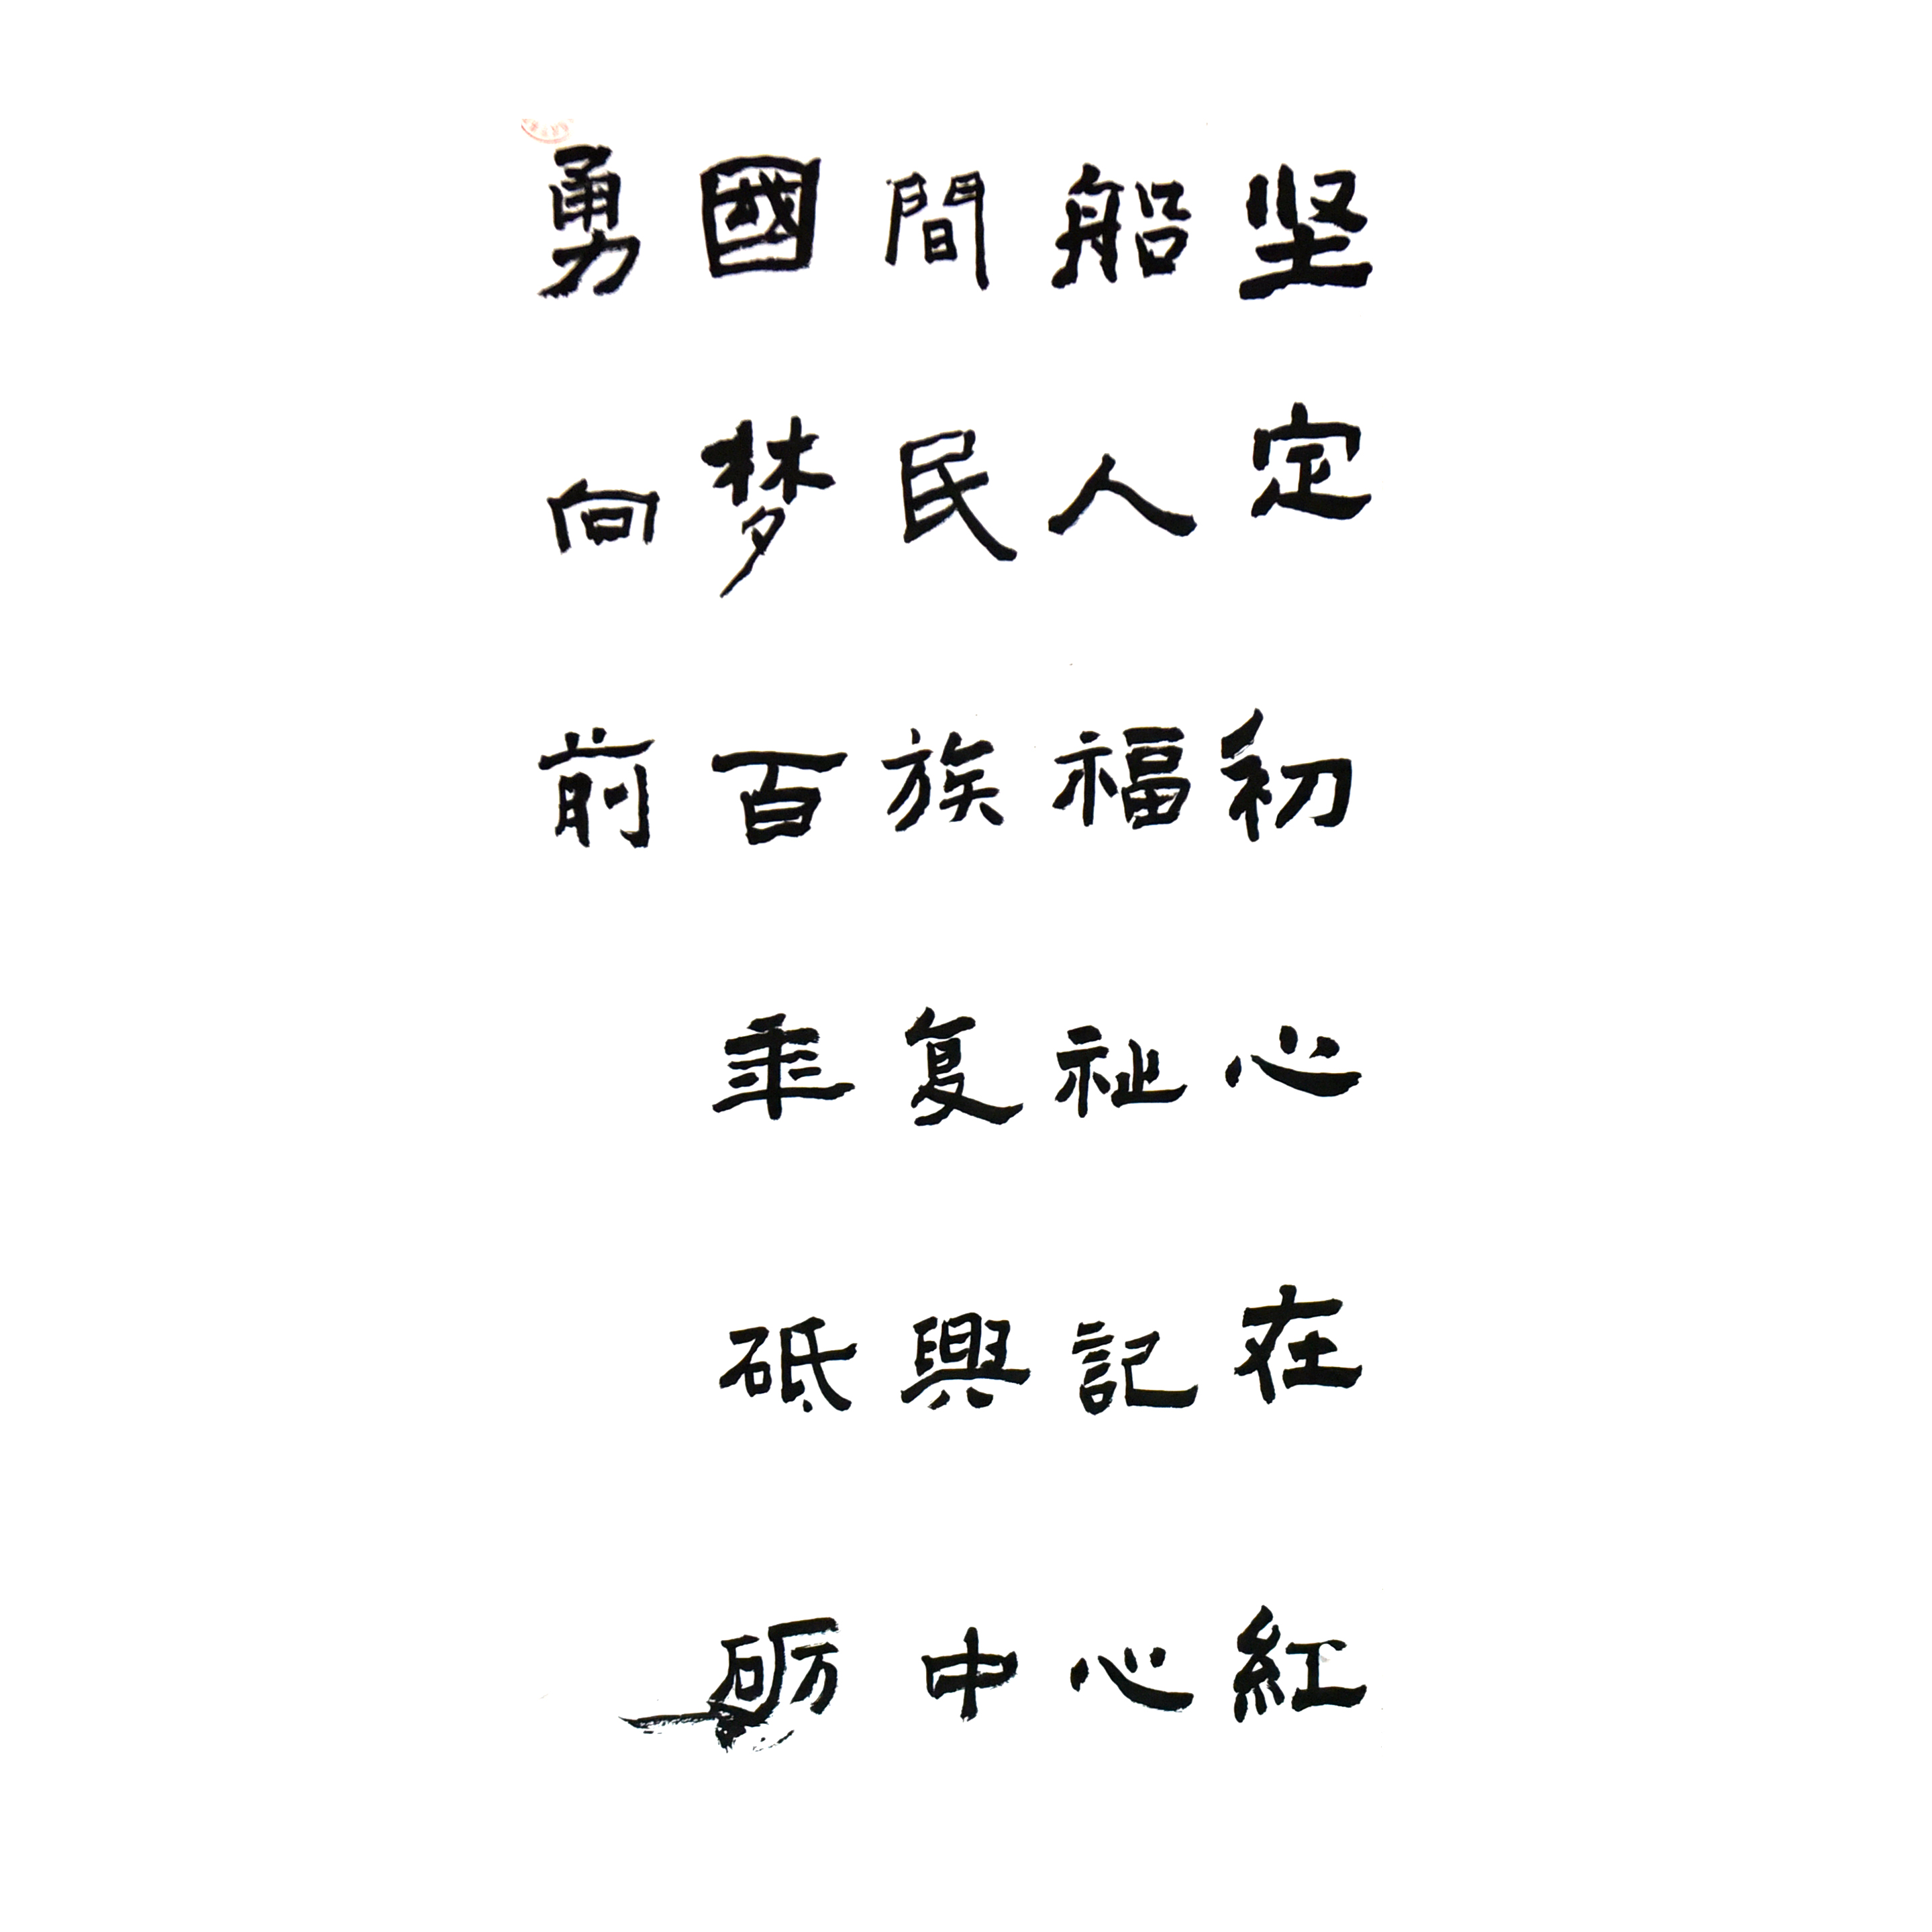 坚定初心在紅
船人福祉記心
間民族复興中
國梦百年砥砺
勇向前